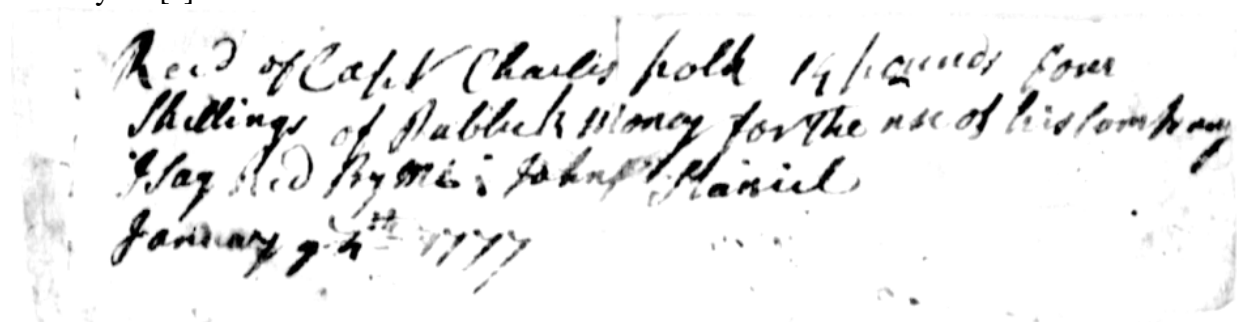 Recd of Capt Charles polk 14 pounds four
Shillings of Publick Money for the use of his Company
I Say Recd By me John
January 9th 1777